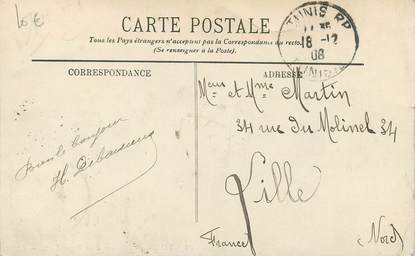 10€
CARTE POSTALE
Tous les Pays étrangers n'acceptent pas la Correspondance au recto
(Se renseigner à la Poste).
TUNIS RP
18-12
08
CORRESPONDANCE
ADRESSE
Meur et Mme Martin
34 rue du Molinel 34
Lille
France
Nord
bonjour
H.